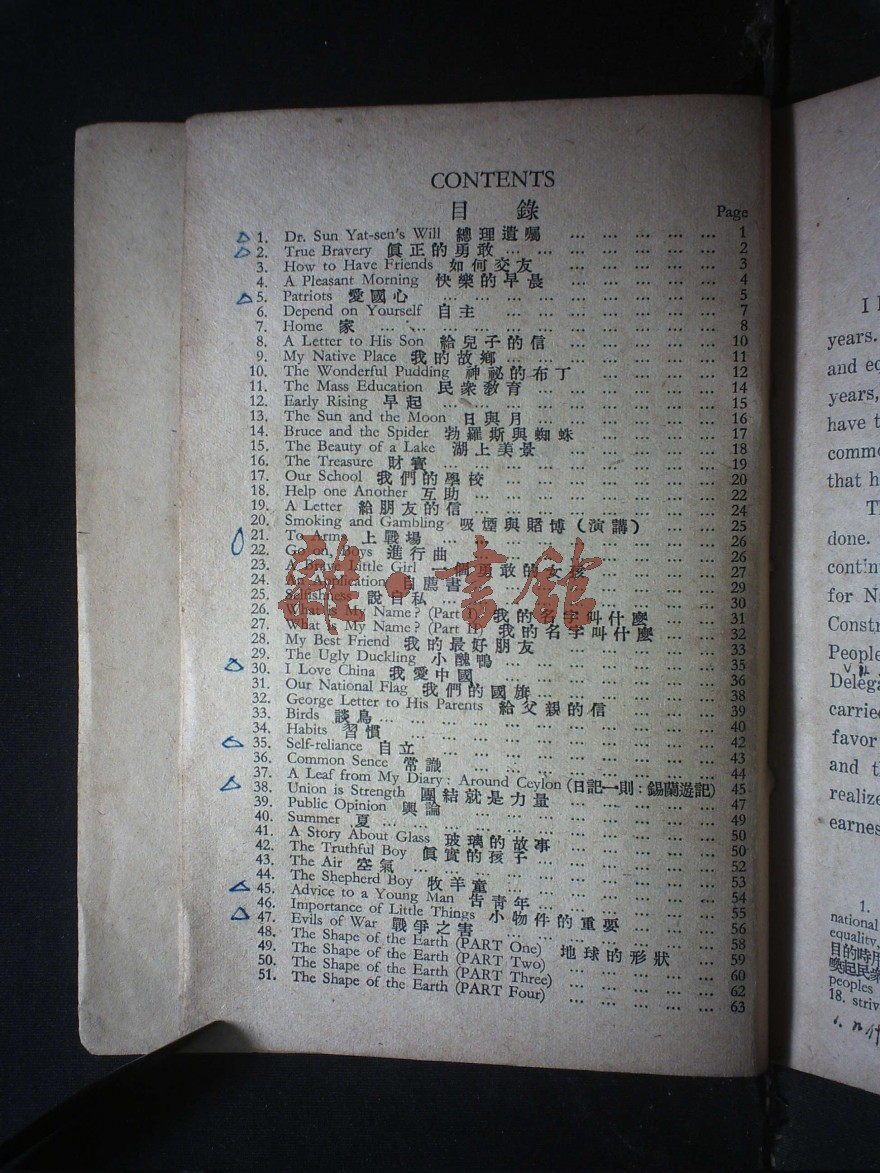 CONTENTS
目錄
Page
1. Dr. Sun Yat-sen's Will 總理遺囑 ... ... ... ... ... 1
2. True Bravery 眞正的勇敢 ... ... ... ... ... ... 2
3. How to Have Friends 如何交友 ... ... ... ... ... 3
4. A Pleasant Morning 快樂的早晨 ... ... ... ... ... 4
5. Patriots 愛國心 ... ... ... ... ... ... ... ... 5
6. Depend on Yourself 自主 ... ... ... ... ... ... ... 7
7. Home 家 ... ... ... ... ... ... ... ... ... 8
8. A Letter to His Son 給兒子的信 ... ... ... ... ... 10
9. My Native Place 我的故鄉 ... ... ... ... ... ... 11
10. The Wonderful Pudding 神祕的布丁 ... ... ... ... 12
11. The Mass Education 民衆敎育 ... ... ... ... ... 14
12. Early Rising 早起 ... ... ... ... ... ... ... ... 15
13. The Sun and the Moon 日與月 ... ... ... ... ... 16
14. Bruce and the Spider 勃羅斯與蜘蛛 ... ... ... ... 17
15. The Beauty of a Lake 湖上美景 ... ... ... ... ... 18
16. The Treasure 財寶 ... ... ... ... ... ... ... ... 19
17. Our School 我們的學校 ... ... ... ... ... ... 20
18. Help one Another 互助 ... ... ... ... ... ... ... 22
19. A Letter 給朋友的信 ... ... ... ... ... ... ... 24
20. Smoking and Gambling 吸煙與賭博(演講) ... ... ... 25
21. To Arms 上戰場 ... ... ... ... ... ... ... 26
22. Go on, Boys 進行曲 ... ... ... ... ... ... ... 26
23. A Brave Little Girl 一個勇敢的女孩 ... ... ... ... 27
24. An Application 自薦書 ... ... ... ... ... ... 29
25. Selfishness 說自私 ... ... ... ... ... ... ... 30
26. What is My Name? (Part I) 我的名字叫什麼 ... ... 31
27. What is My Name? (Part II) 我的名字叫什麼 ... ... 32
28. My Best Friend 我的最好朋友 ... ... ... ... ... 33
29. The Ugly Duckling 小醜鴨 ... ... ... ... ... ... 35
30. I Love China 我愛中國 ... ... ... ... ... ... 36
31. Our National Flag 我們的國旗 ... ... ... ... ... 38
32. George Letter to His Parents 給父親的信 ... ... ... 39
33. Birds 談鳥 ... ... ... ... ... ... ... ... ... 40
34. Habits 習慣 ... ... ... ... ... ... ... ... 42
35. Self-reliance 自立 ... ... ... ... ... ... ... 43
36. Common Sence 常識 ... ... ... ... ... ... ... 44
37. A Leaf from My Diary: Around Ceylon (日記一則:錫蘭遊記) 45
38. Union is Strength 團結就是力量 ... ... ... ... ... 47
39. Public Opinion 輿論 ... ... ... ... ... ... ... 49
40. Summer 夏 ... ... ... ... ... ... ... ... 50
41. A Story About Glass 玻璃的故事 ... ... ... ... ... 50
42. The Truthful Boy 眞實的孩子 ... ... ... ... ... 52
43. The Air 空氣 ... ... ... ... ... ... ... ... 53
44. The Shepherd Boy 牧羊童 ... ... ... ... ... ... 54
45. Advice to a Young Man 告青年 ... ... ... ... ... 55
46. Importance of Little Things 小物件的重要 ... ... ... 56
47. Evils of War 戰爭之害 ... ... ... ... ... ... 58
48. The Shape of the Earth (PART One) 地球的形狀 ... ... 59
49. The Shape of the Earth (PART Two) ... ... ... ... 60
50. The Shape of the Earth (PART Three) ... ... ... ... 62
51. The Shape of the Earth (PART Four) ... ... ... ... 63
雜·書館
years.
and eq
years,
have t
commo
that h
Th
done.
contin
for Na
Constr
People
Delega
carried
favor
and th
realize
earnes
1.
national
equality,
目的時用
喚起民衆
peoples
18. striv